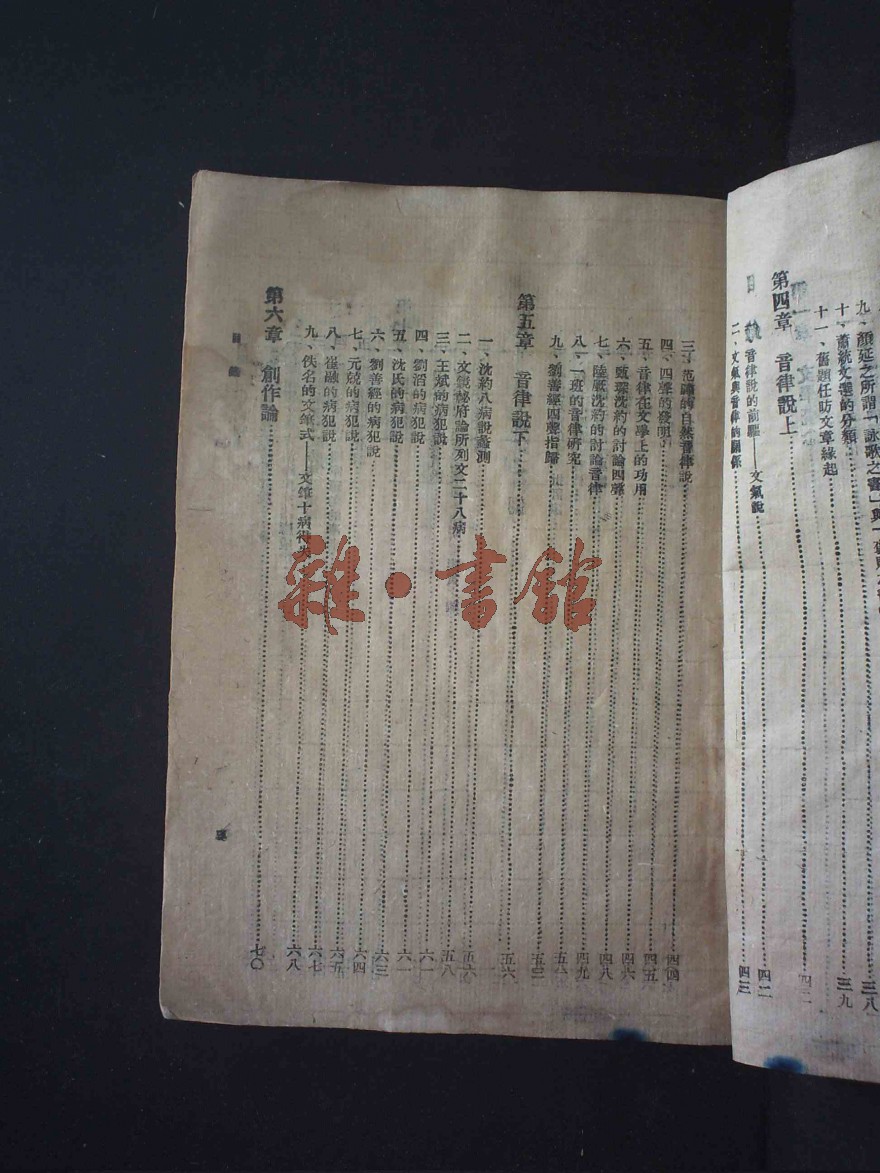 九、顏延之所謂「詠歌之書」與「
三八
十、蕭統文選的分類
三九
十一、舊題任昉文章緣起
第四章 音律說上
四二
一、音律說的前驅——文氣說
四二
二、文氣與音律的關係
四三
三、范曄的自然音律說
四四
四、四聲的發明
四五
五、音律在文學上的功用
四六
六、甄琛沈約的討論四聲
四八
七、陸厥沈約的討論音律
四九
八、一班的音律研究
五一
九、劉善經四聲指歸
五三
第五章 音律說下
五六
一、沈約八病說蠡測
五六
二、文鏡祕府論所列文二十八病
五八
三、王斌的病犯說
六一
四、劉滔的病犯說
六一
五、沈氏的病犯說
六三
六、劉善經的病犯說
六四
七、元兢的病犯說
六五
八、崔融的病犯說
六七
九、佚名的文筆式——文筆十病得失
六八
第六章 創作論
七〇
目 錄
雜·書館